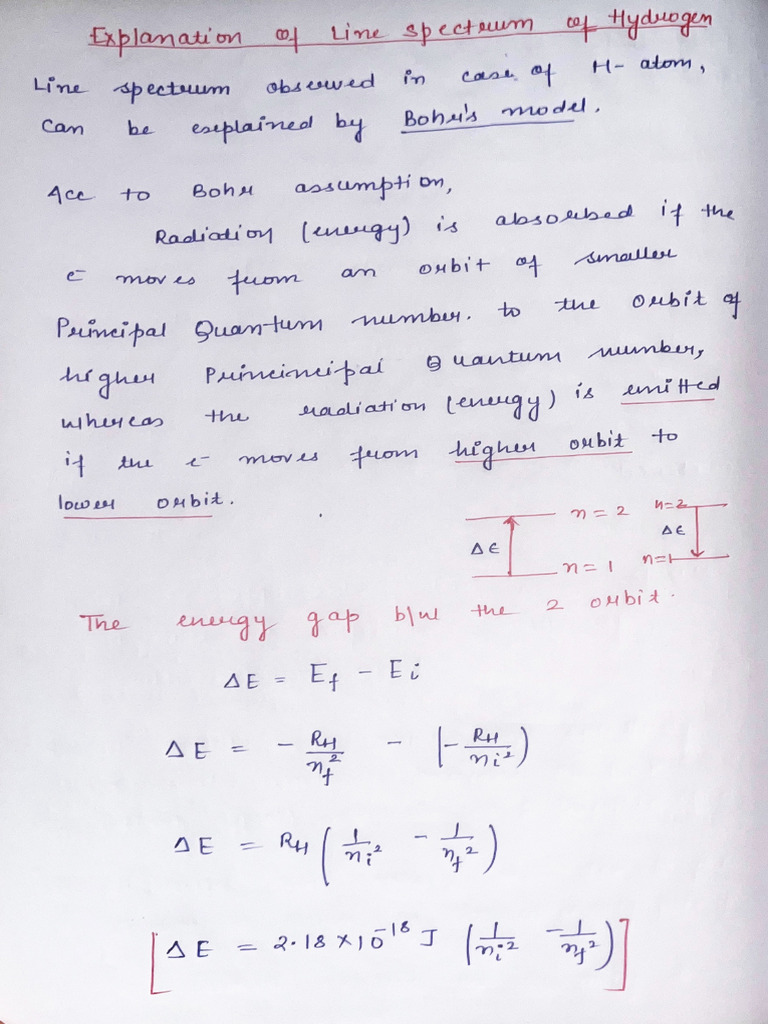 Explanation of Line spectrum of Hydrogen
Line spectrum observed in case of H-atom,
can be explained by Bohr's model.
Acc to Bohr assumption,
Radiation (energy) is absorbed if the
e⁻ moves from an orbit of smaller
Principal Quantum number. to the orbit of
higher Princincipal Quantum number,
whereas the radiation (energy) is emitted
if the e⁻ moves from higher orbit to
lower orbit.
n = 2 n=2
ΔE ΔE
n = 1 n=1
The energy gap b/w the 2 orbit.
ΔE = E_f - E_i
ΔE = - R_H/n_f² - (- R_H/n_i²)
ΔE = R_H (1/n_i² - 1/n_f²)
[ΔE = 2.18 × 10⁻¹⁸ J (1/n_i² - 1/n_f²)]